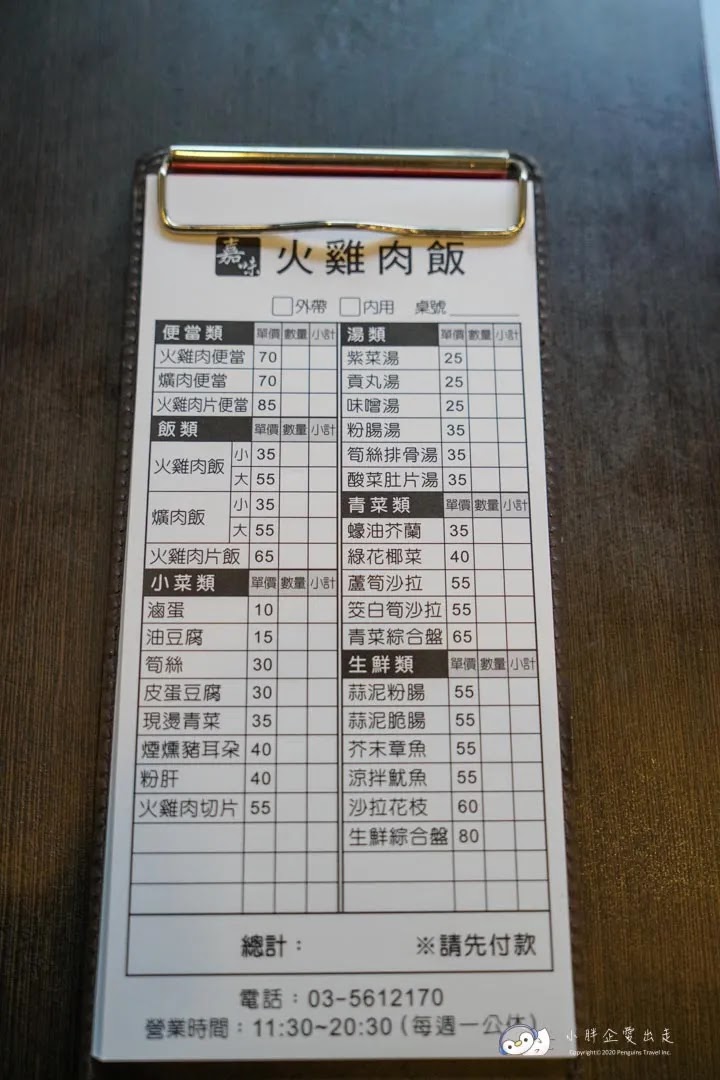 嘉味 火雞肉飯
外帶 內用 桌號
便當類 單價 數量 小計
火雞肉便當 70
爌肉便當 70
火雞肉片便當 85
飯類 單價 數量 小計
火雞肉飯 小 35
大 55
爌肉飯 小 35
大 55
火雞肉片飯 65
小菜類 單價 數量 小計
滷蛋 10
油豆腐 15
筍絲 30
皮蛋豆腐 30
現燙青菜 35
煙燻豬耳朵 40
粉肝 40
火雞肉切片 55
湯類 單價 數量 小計
紫菜湯 25
貢丸湯 25
味噌湯 25
粉腸湯 35
筍絲排骨湯 35
酸菜肚片湯 35
青菜類 單價 數量 小計
蠔油芥蘭 35
綠花椰菜 40
蘆筍沙拉 55
筊白筍沙拉 55
青菜綜合盤 65
生鮮類 單價 數量 小計
蒜泥粉腸 55
蒜泥脆腸 55
芥末章魚 55
涼拌魷魚 55
沙拉花枝 60
生鮮綜合盤 80
總計： ※請先付款
電話：03-5612170
營業時間：11:30~20:30（每週一公休）
小胖企愛出走
Copyright© 2020 Penguins Travel Inc.